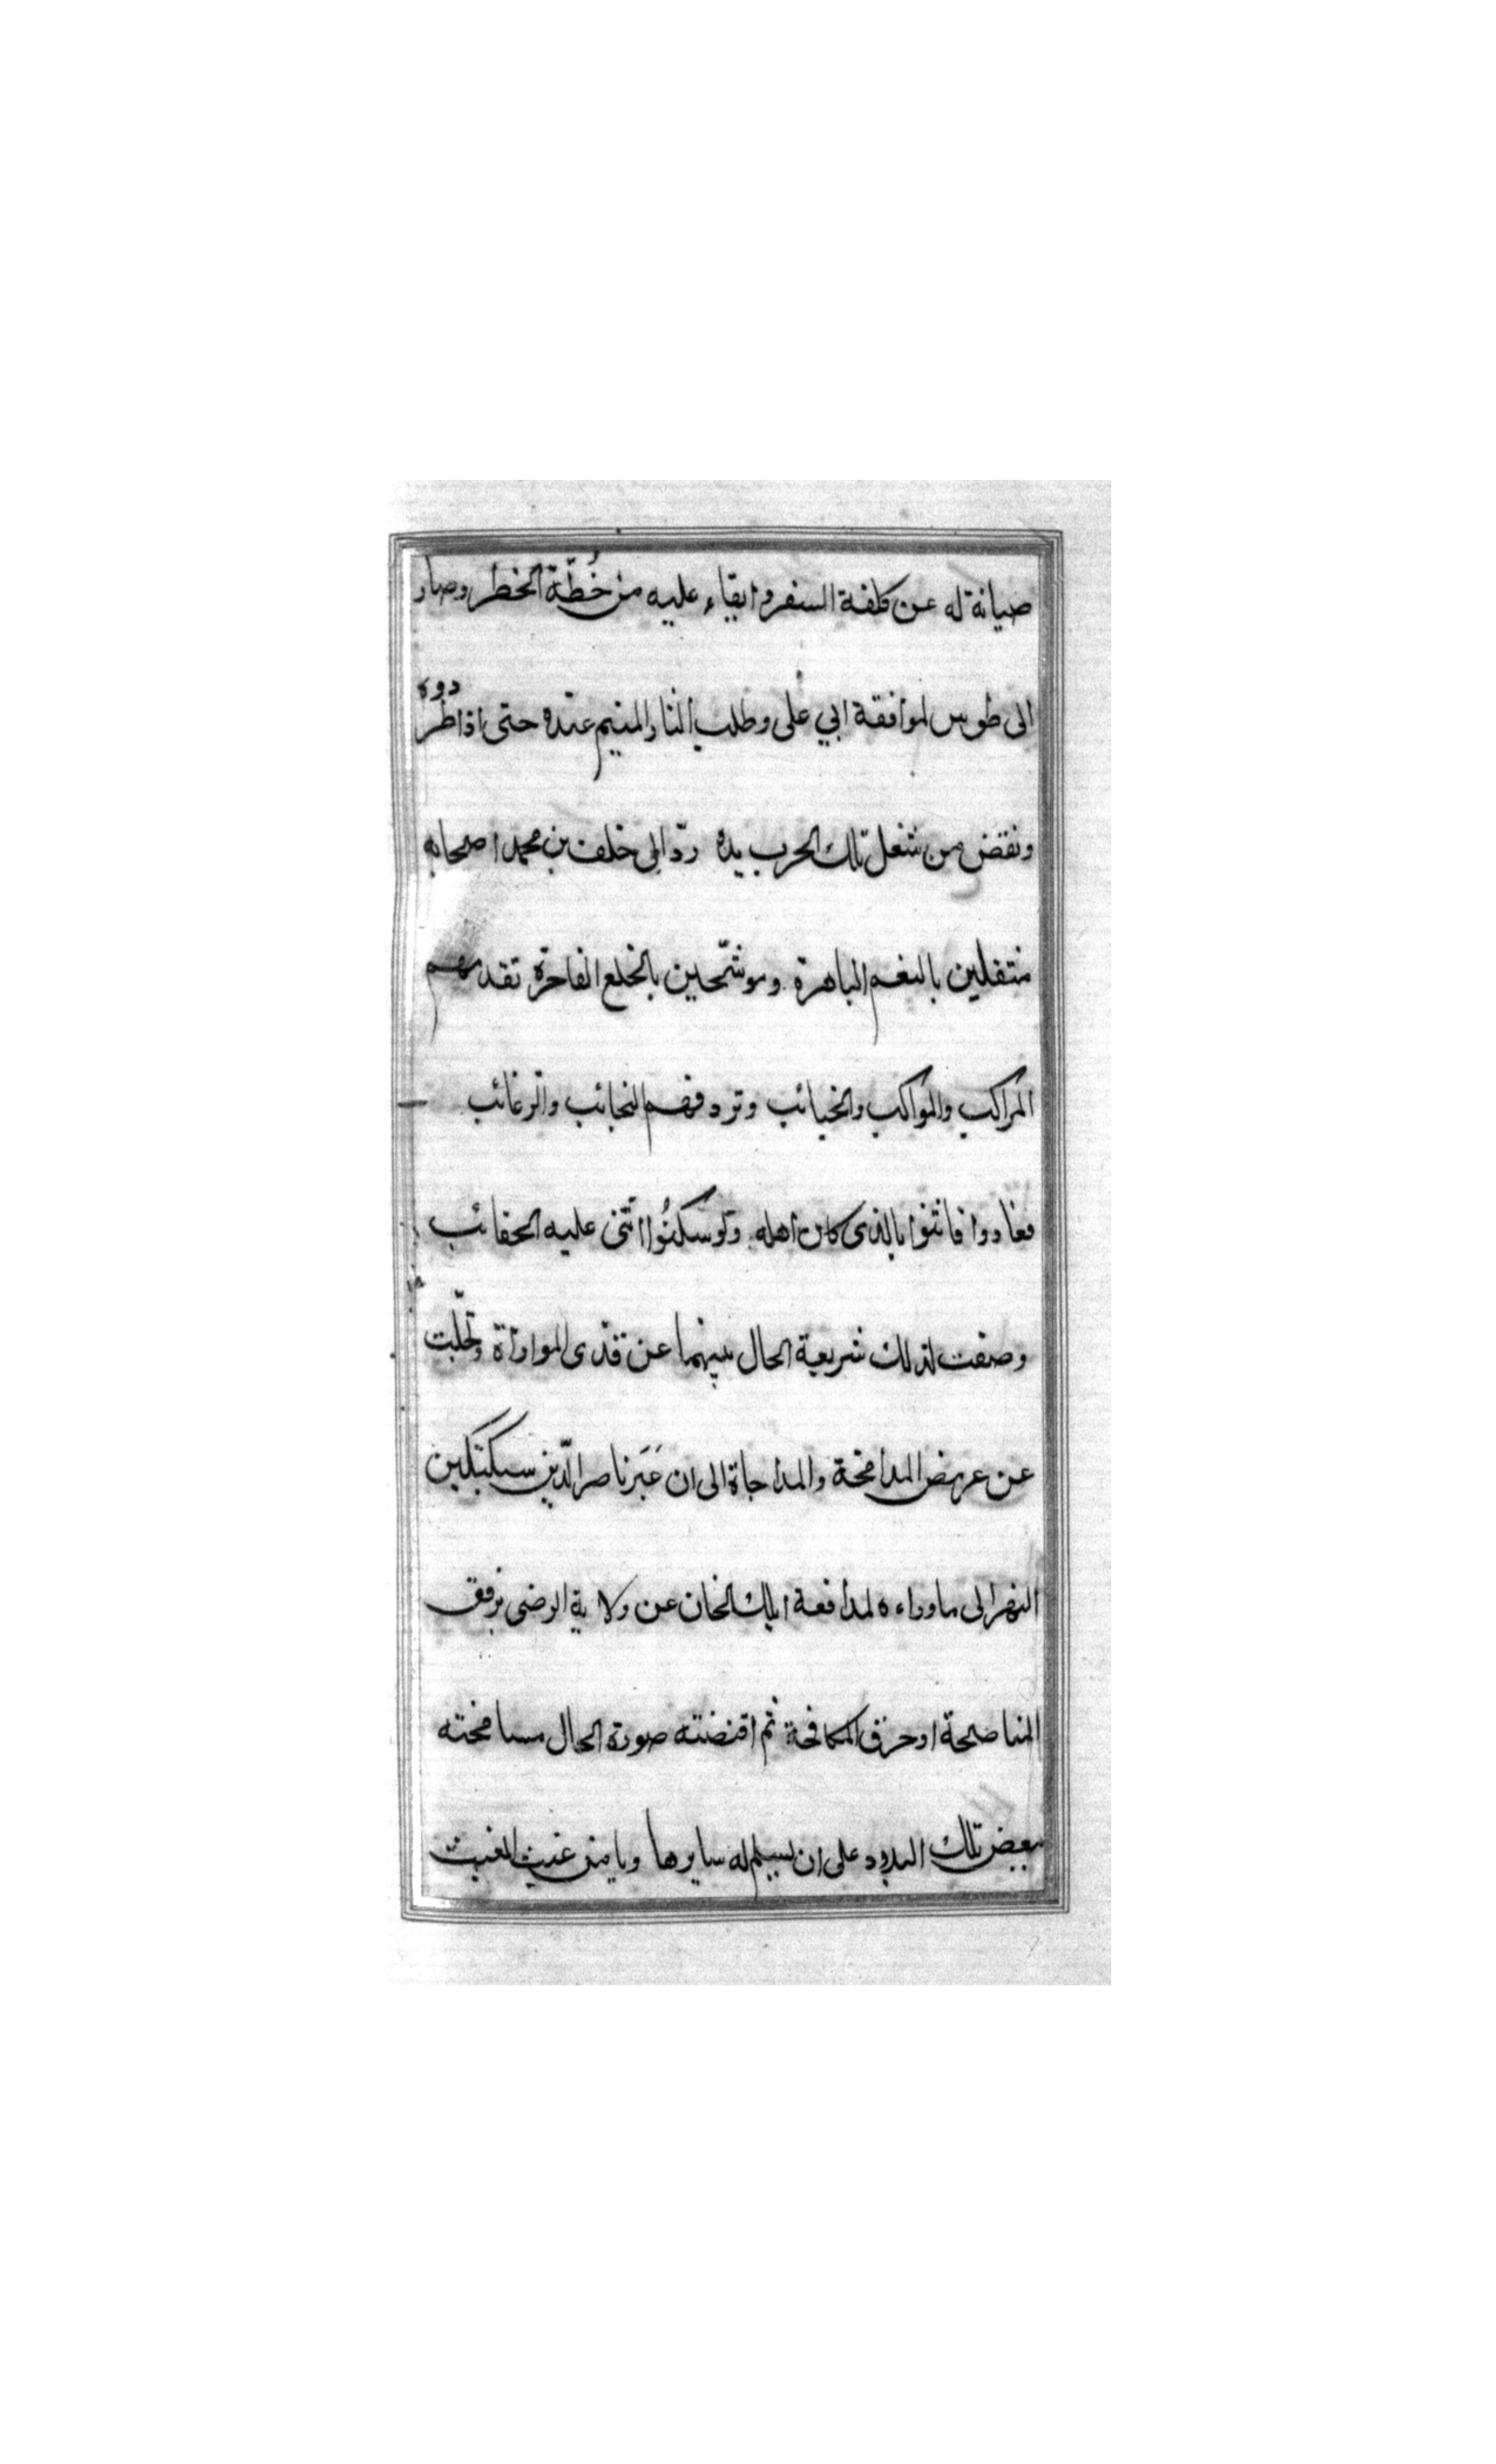 صيانة له عن كلفة السفر وابقاء عليه من خُطّة الخطر وصار
الى طوس لموافقة ابي على وطلب الثار المنيم عنده حتى اذا طردوه
ونفض من شغل تلك الحرب يده ردّ الى خلف بن محمد اصحابه
منتفلين بالنعم الباهرة وموشّحين بالخلع الفاخرة تقدمهم
المراكب والمواكب والخبائب وتردفهم النجائب والرغائب
فعادوا فاثنوا بالذى كان اهله ولو سكتُوا اثنى عليه الحقائب
وصفت لذلك شريعة الحال بينهما عن قذى المواراة وتجلّبت
عن عريض المدامجة والمداجاة الى ان عَبَر ناصر الدّين سبكتكين
النهر الى ماوراءه لمدافعة ايلك الخان عن ولاية الرضى برفق
المناصحة او خرق المكافحة ثم اقتضته صورة الحال مسامحته
ببعض تلك الحدود على ان يسلم له سايرها ويامن